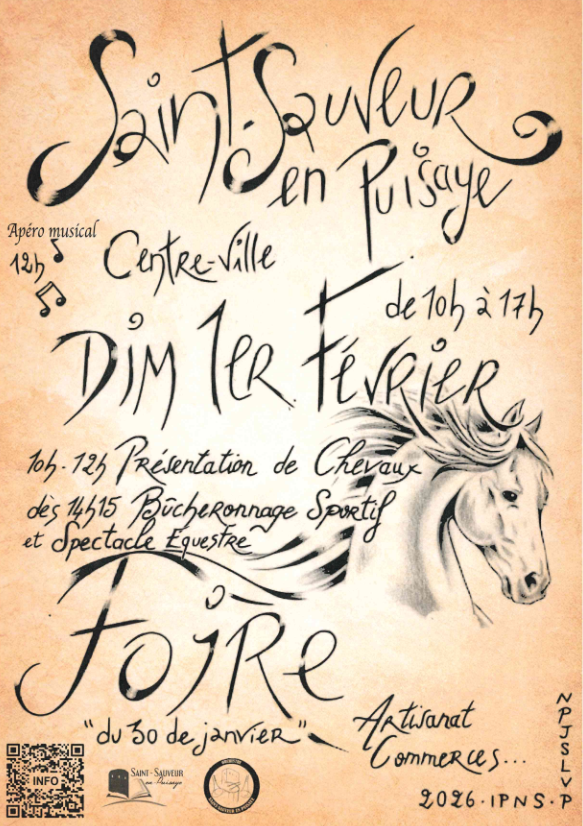 Saint-Sauveur
en Puisaye
Apéro musical
12h
Centre-Ville
de 10h à 17h
Dim 1er Février
10h-12h Présentation de Chevaux
dès 14h15 Bûcheronnage Sportif
et Spectacle Equestre
Foire
"du 30 de janvier"
Artisanat
Commerces...
2026·IPNS·
NPJSLVP
INFO
SAINT-SAUVEUR
en Puisaye